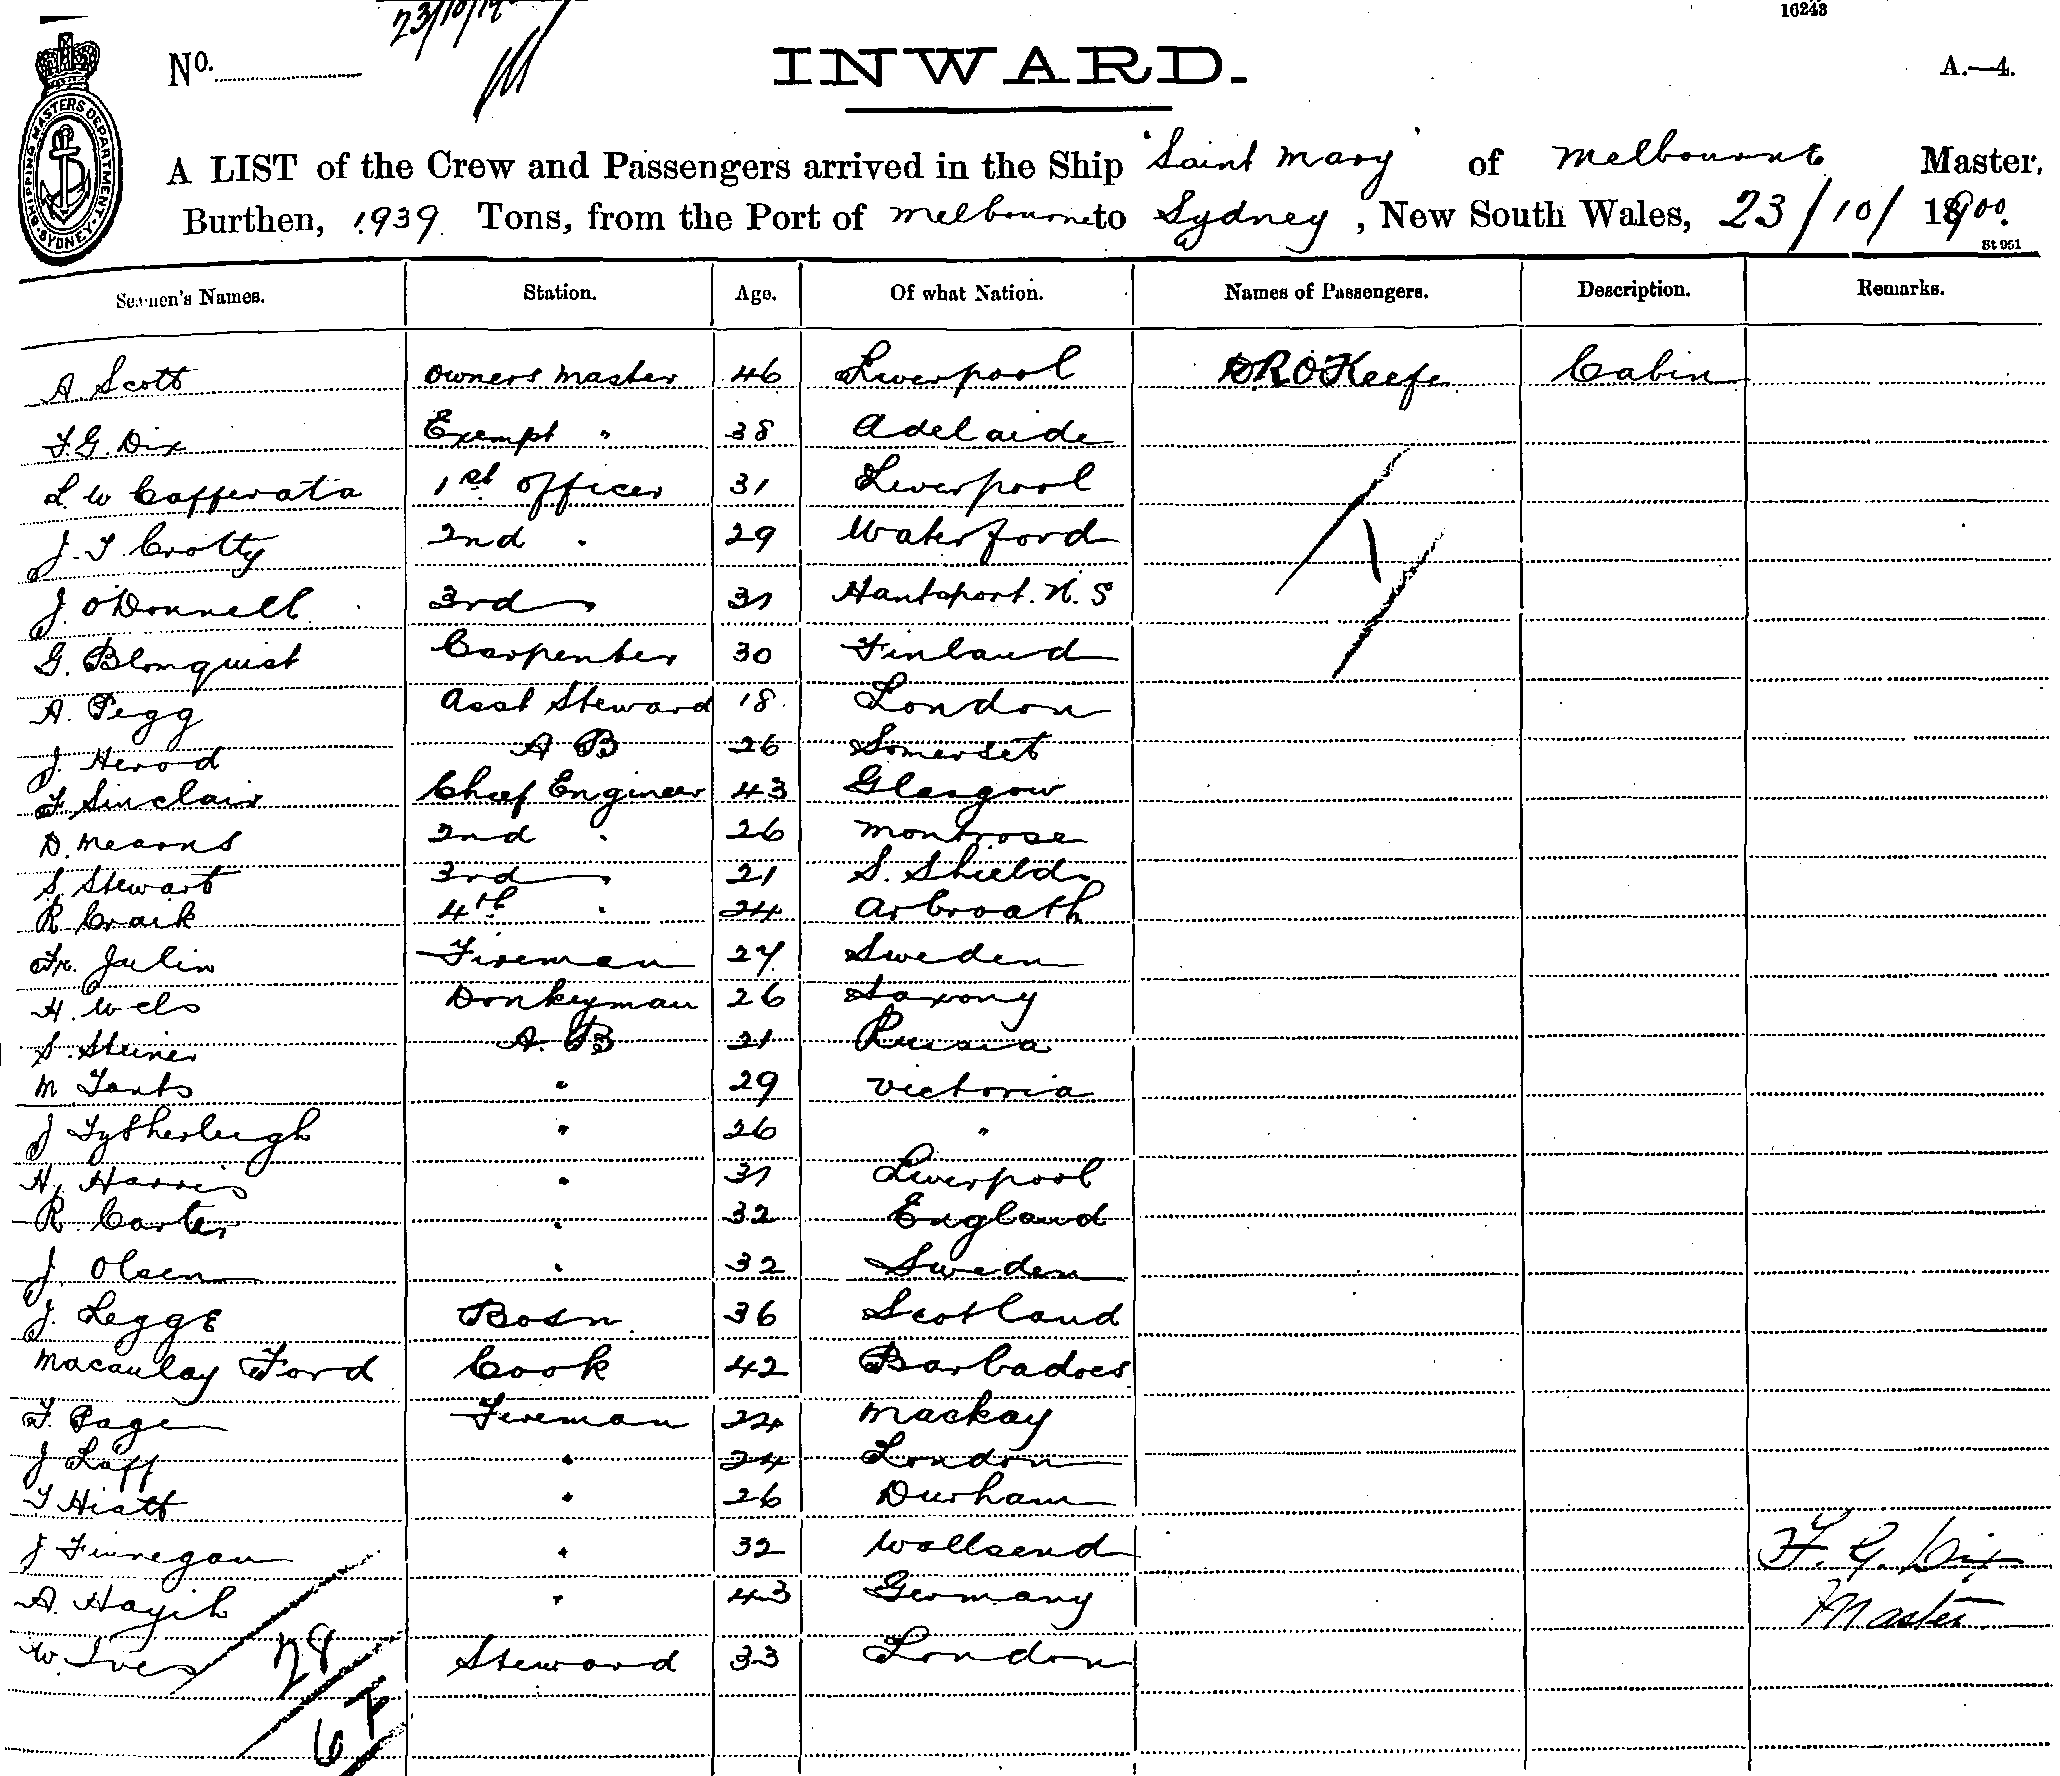 23/10/19
16243
No.
INWARD.
A.—4.
SHIPPING MASTERS DEPARTMENT. SYDNEY.
A LIST of the Crew and Passengers arrived in the Ship "Saint Mary" of Melbourne Master,
Burthen, 1939 Tons, from the Port of Melbourne to Sydney, New South Wales, 23/10/1900.
St 951
Seamen's Names. Station. Age. Of what Nation. Names of Passengers. Description. Remarks.
A Scott Owners Master 46 Liverpool D R O'Keefe Cabin
F. G. Dix Exempt " 38 Adelaide
L. W Cafferata 1st Officer 31 Liverpool
J. T. Crotty 2nd " 29 Waterford
J. O'Donnell 3rd " 31 Hantsport. N. S
G. Blomquist Carpenter 30 Finland
A. Pegg Asst Steward 18 London
J. Herod A B 26 Somerset
F. Sinclair Chief Engineer 43 Glasgow
D. Mearns 2nd " 26 Montrose
S. Stewart 3rd " 21 S. Shields
R Craik 4th " 24 Arbroath
Fr. Julin Fireman 27 Sweden
H. Wels Donkeyman 26 Saxony
S. Steiner A. B 21 Russia
M Tants " 29 Victoria
J Tytherleigh " 26 "
H. Harris " 31 Liverpool
R. Carter " 32 England
J. Olsen " 32 Sweden
J. Legge Bosn. 36 Scotland
Macaulay Ford Cook 42 Barbadoes
F. Page Fireman 22 Mackay
J Laff " 24 London
T Hiatt " 26 Durham
J Finnegan " 32 Wallsend F. G. Dix
A. Hayik " 43 Germany Master
W. Ives Steward 33 London
28